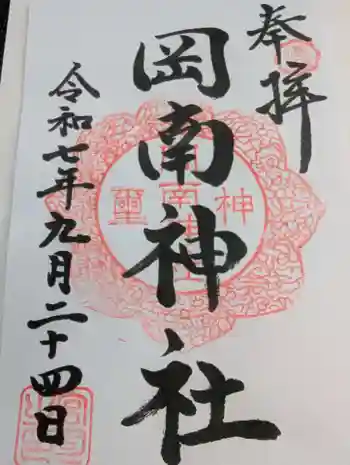 奉拝
岡南神社
令和七年九月二十四日
神
南
璽